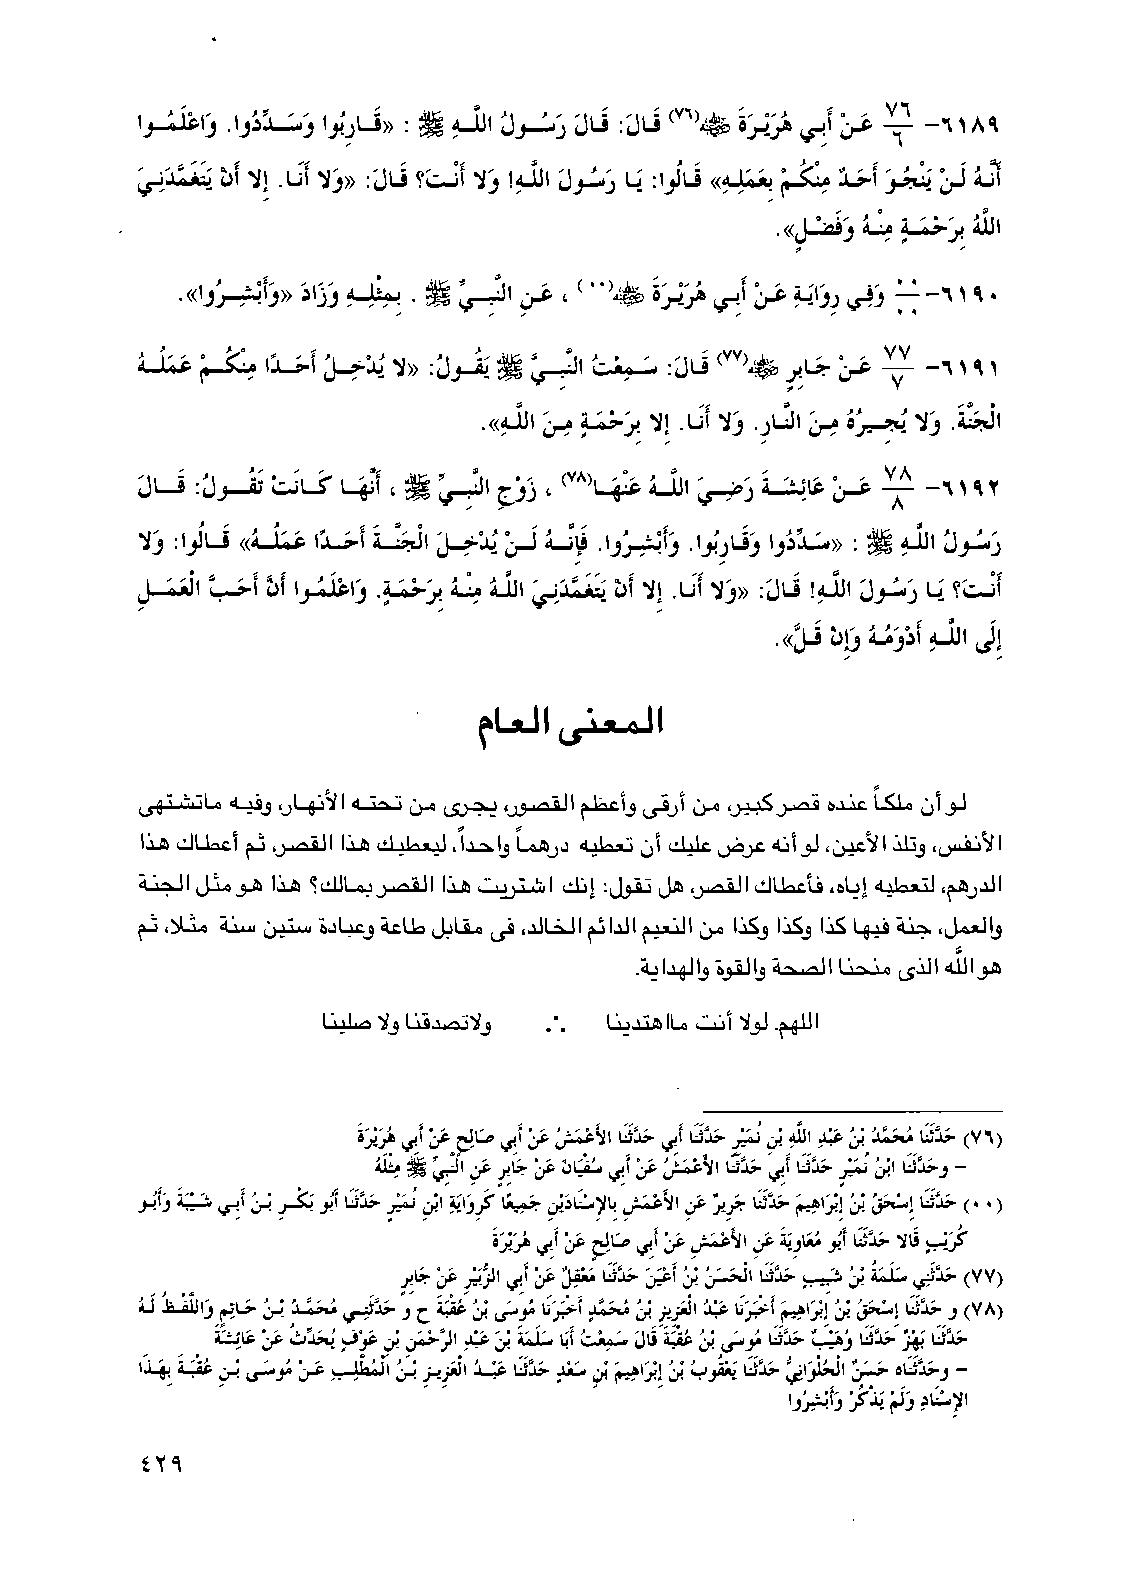 ٦١٨٩- ٧٦/٦ عَنْ أَبِي هُرَيْرَةَ ﷺ(٧٦) قَالَ: قَالَ رَسُولُ اللَّهِ ﷺ : «قَارِبُوا وَسَدِّدُوا. وَاعْلَمُوا
أَنَّهُ لَنْ يَنْجُوَ أَحَدٌ مِنْكُمْ بِعَمَلِهِ» قَالُوا: يَا رَسُولَ اللَّهِ! وَلا أَنْتَ؟ قَالَ: «وَلا أَنَا. إِلا أَنْ يَتَغَمَّدَنِيَ
اللَّهُ بِرَحْمَةٍ مِنْهُ وَفَضْلٍ».
٦١٩٠- ٠٠/٠٠ وَفِي رِوَايَةٍ عَنْ أَبِي هُرَيْرَةَ ﷺ(٠٠) ، عَنِ النَّبِيِّ ﷺ . بِمِثْلِهِ وَزَادَ «وَأَبْشِرُوا».
٦١٩١- ٧٧/٧ عَنْ جَابِرٍ ﷺ(٧٧) قَالَ: سَمِعْتُ النَّبِيَّ ﷺ يَقُولُ: «لا يُدْخِلُ أَحَدًا مِنْكُمْ عَمَلُهُ
الْجَنَّةَ. وَلا يُجِيرُهُ مِنَ النَّارِ. وَلا أَنَا. إِلا بِرَحْمَةٍ مِنَ اللَّهِ».
٦١٩٢- ٧٨/٨ عَنْ عَائِشَةَ رَضِيَ اللَّهُ عَنْهَا(٧٨) ، زَوْجِ النَّبِيِّ ﷺ ، أَنَّهَا كَانَتْ تَقُولُ: قَالَ
رَسُولُ اللَّهِ ﷺ : «سَدِّدُوا وَقَارِبُوا. وَأَبْشِرُوا. فَإِنَّهُ لَنْ يُدْخِلَ الْجَنَّةَ أَحَدًا عَمَلُهُ» قَالُوا: وَلا
أَنْتَ؟ يَا رَسُولَ اللَّهِ! قَالَ: «وَلا أَنَا. إِلا أَنْ يَتَغَمَّدَنِيَ اللَّهُ مِنْهُ بِرَحْمَةٍ. وَاعْلَمُوا أَنَّ أَحَبَّ الْعَمَلِ
إِلَى اللَّهِ أَدْوَمُهُ وَإِنْ قَلَّ».
المعنى العام
لو أن ملكاً عنده قصر كبير، من أرقى وأعظم القصور، يجرى من تحته الأنهار، وفيه ماتشتهى
الأنفس، وتلذ الأعين، لو أنه عرض عليك أن تعطيه درهماً واحداً، ليعطيك هذا القصر، ثم أعطاك هذا
الدرهم، لتعطيه إياه، فأعطاك القصر، هل تقول: إنك اشتريت هذا القصر بمالك؟ هذا هو مثل الجنة
والعمل، جنة فيها كذا وكذا وكذا من النعيم الدائم الخالد، فى مقابل طاعة وعبادة ستين سنة مثلا، ثم
هو اللَّه الذى منحنا الصحة والقوة والهداية.
اللهم. لولا أنت مااهتدينا ∴ ولاتصدقنا ولا صلينا
(٧٦) حَدَّثَنَا مُحَمَّدُ بْنُ عَبْدِ اللَّهِ بْنِ نُمَيْرٍ حَدَّثَنَا أَبِي حَدَّثَنَا الأَعْمَشُ عَنْ أَبِي صَالِحٍ عَنْ أَبِي هُرَيْرَةَ
– وحَدَّثَنَا ابْنُ نُمَيْرٍ حَدَّثَنَا أَبِي حَدَّثَنَا الأَعْمَشُ عَنْ أَبِي سُفْيَانَ عَنْ جَابِرٍ عَنِ النَّبِيِّ ﷺ مِثْلَهُ
(٠٠) حَدَّثَنَا إِسْحَقُ بْنُ إِبْرَاهِيمَ حَدَّثَنَا جَرِيرٌ عَنِ الأَعْمَشِ بِالإِسْنَادَيْنِ جَمِيعًا كَرِوَايَةِ ابْنِ نُمَيْرٍ حَدَّثَنَا أَبُو بَكْرِ بْنُ أَبِي شَيْبَةَ وَأَبُو
كُرَيْبٍ قَالا حَدَّثَنَا أَبُو مُعَاوِيَةَ عَنِ الأَعْمَشِ عَنْ أَبِي صَالِحٍ عَنْ أَبِي هُرَيْرَةَ
(٧٧) حَدَّثَنِي سَلَمَةُ بْنُ شَبِيبٍ حَدَّثَنَا الْحَسَنُ بْنُ أَعْيَنَ حَدَّثَنَا مَعْقِلٌ عَنْ أَبِي الزُّبَيْرِ عَنْ جَابِرٍ
(٧٨) و حَدَّثَنَا إِسْحَقُ بْنُ إِبْرَاهِيمَ أَخْبَرَنَا عَبْدُ الْعَزِيزِ بْنُ مُحَمَّدٍ أَخْبَرَنَا مُوسَى بْنُ عُقْبَةَ ح و حَدَّثَنِي مُحَمَّدُ بْنُ حَاتِمٍ وَاللَّفْظُ لَهُ
حَدَّثَنَا بَهْزٌ حَدَّثَنَا وُهَيْبٌ حَدَّثَنَا مُوسَى بْنُ عُقْبَةَ قَالَ سَمِعْتُ أَبَا سَلَمَةَ بْنَ عَبْدِ الرَّحْمَنِ بْنِ عَوْفٍ يُحَدِّثُ عَنْ عَائِشَةَ
– وحَدَّثَنَاه حَسَنٌ الْحُلْوَانِيُّ حَدَّثَنَا يَعْقُوبُ بْنُ إِبْرَاهِيمَ بْنِ سَعْدٍ حَدَّثَنَا عَبْدُ الْعَزِيزِ بْنُ الْمُطَّلِبِ عَنْ مُوسَى بْنِ عُقْبَةَ بِهَذَا
الإِسْنَادِ وَلَمْ يَذْكُرْ وَأَبْشِرُوا
٤٢٩